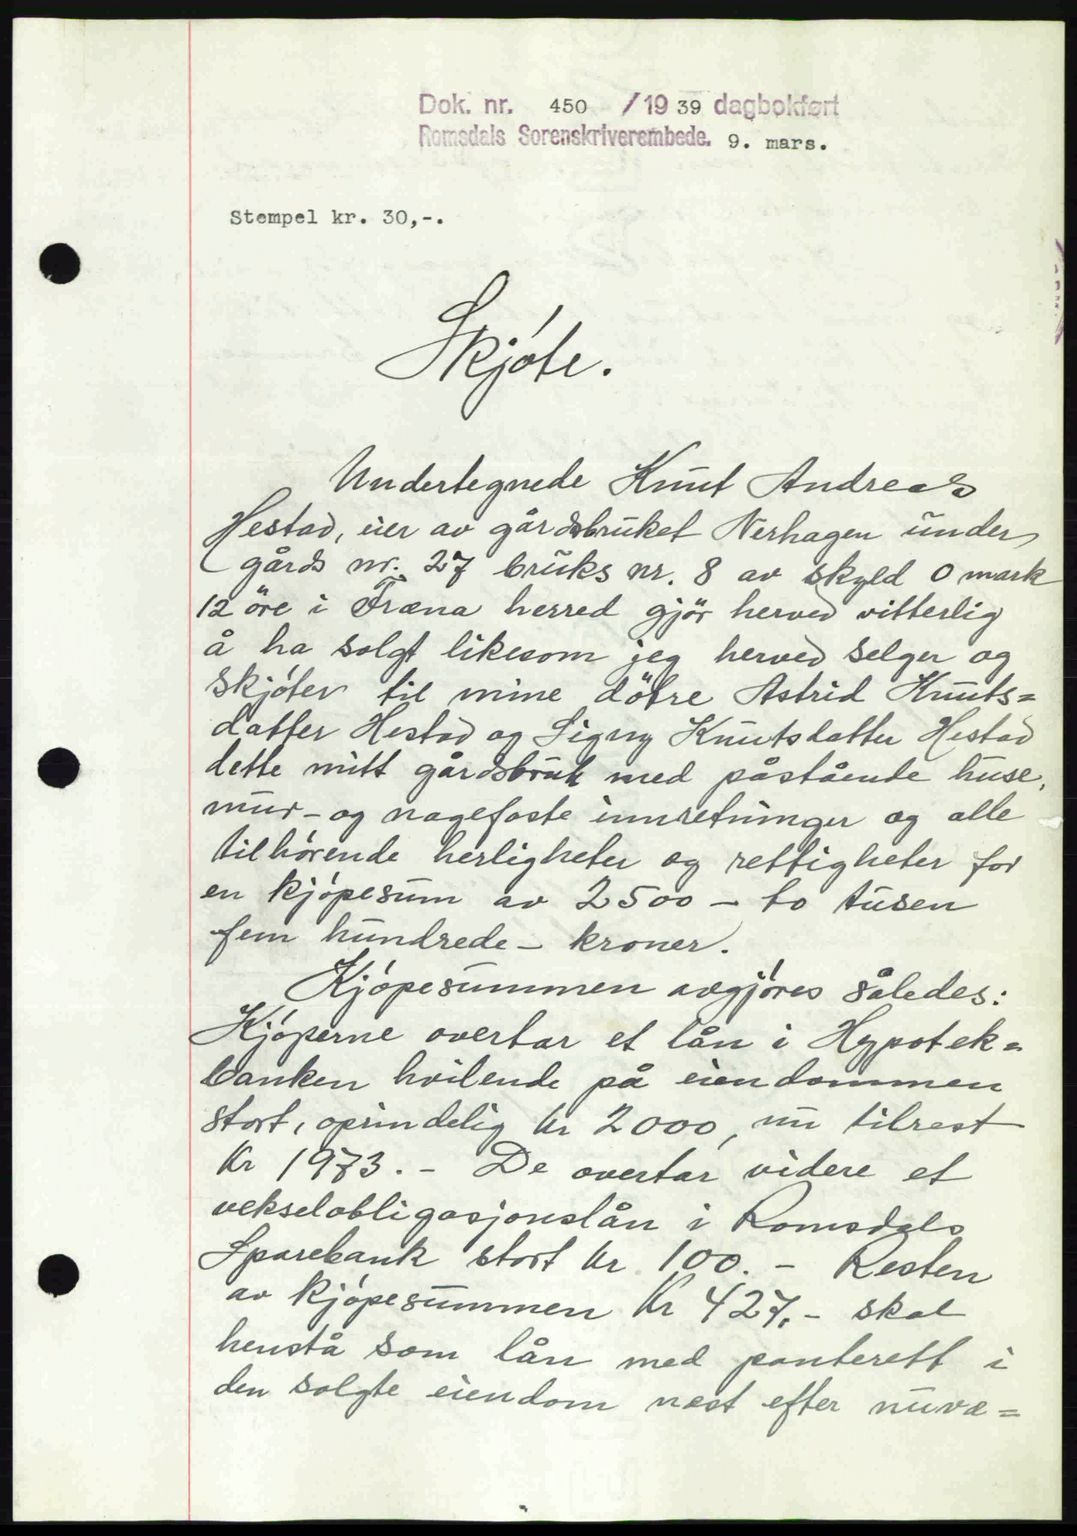 Dok. nr. 450 /19 39 dagbokført
Romsdals Sorenskriverembede. 9. mars.
Stempel kr. 30,-.
Skjóte.
Undertegnede Knut Andreas
Hestad, eier av gårdsbruket Nerhagen under
gårds nr. 27 bruks nr. 8 av skyld 0 mark
12 öre i Fræna herred gjör herved vitterlig
å ha solgt likesom jeg herved selger og
skjóter til mine dötre Astrid Knuts=
datter Hestad og Signy Knutsdatter Hestad
dette mitt gårdsbruk med påstående huse,
mur- og nagefaste innretninger og alle
tilhórende herligheter og rettigheter for
en kjópesum av 2500 - to tusen
fem hundrede - kroner.
Kjópesummen avgjóres således:
Kjóperne overtar et lån i Hypotek=
banken hvilende på eiendommen
stort, oprindelig kr 2000, nu tilrest
kr 1973. - De overtar videre et
vekselobligasjonslån i Romsdals
Sparebank stort kr 100. - Resten
av kjópesummen Kr 427,- skal
henstå som lån med panterett i
den solgte eiendom næst efter nuvæ=